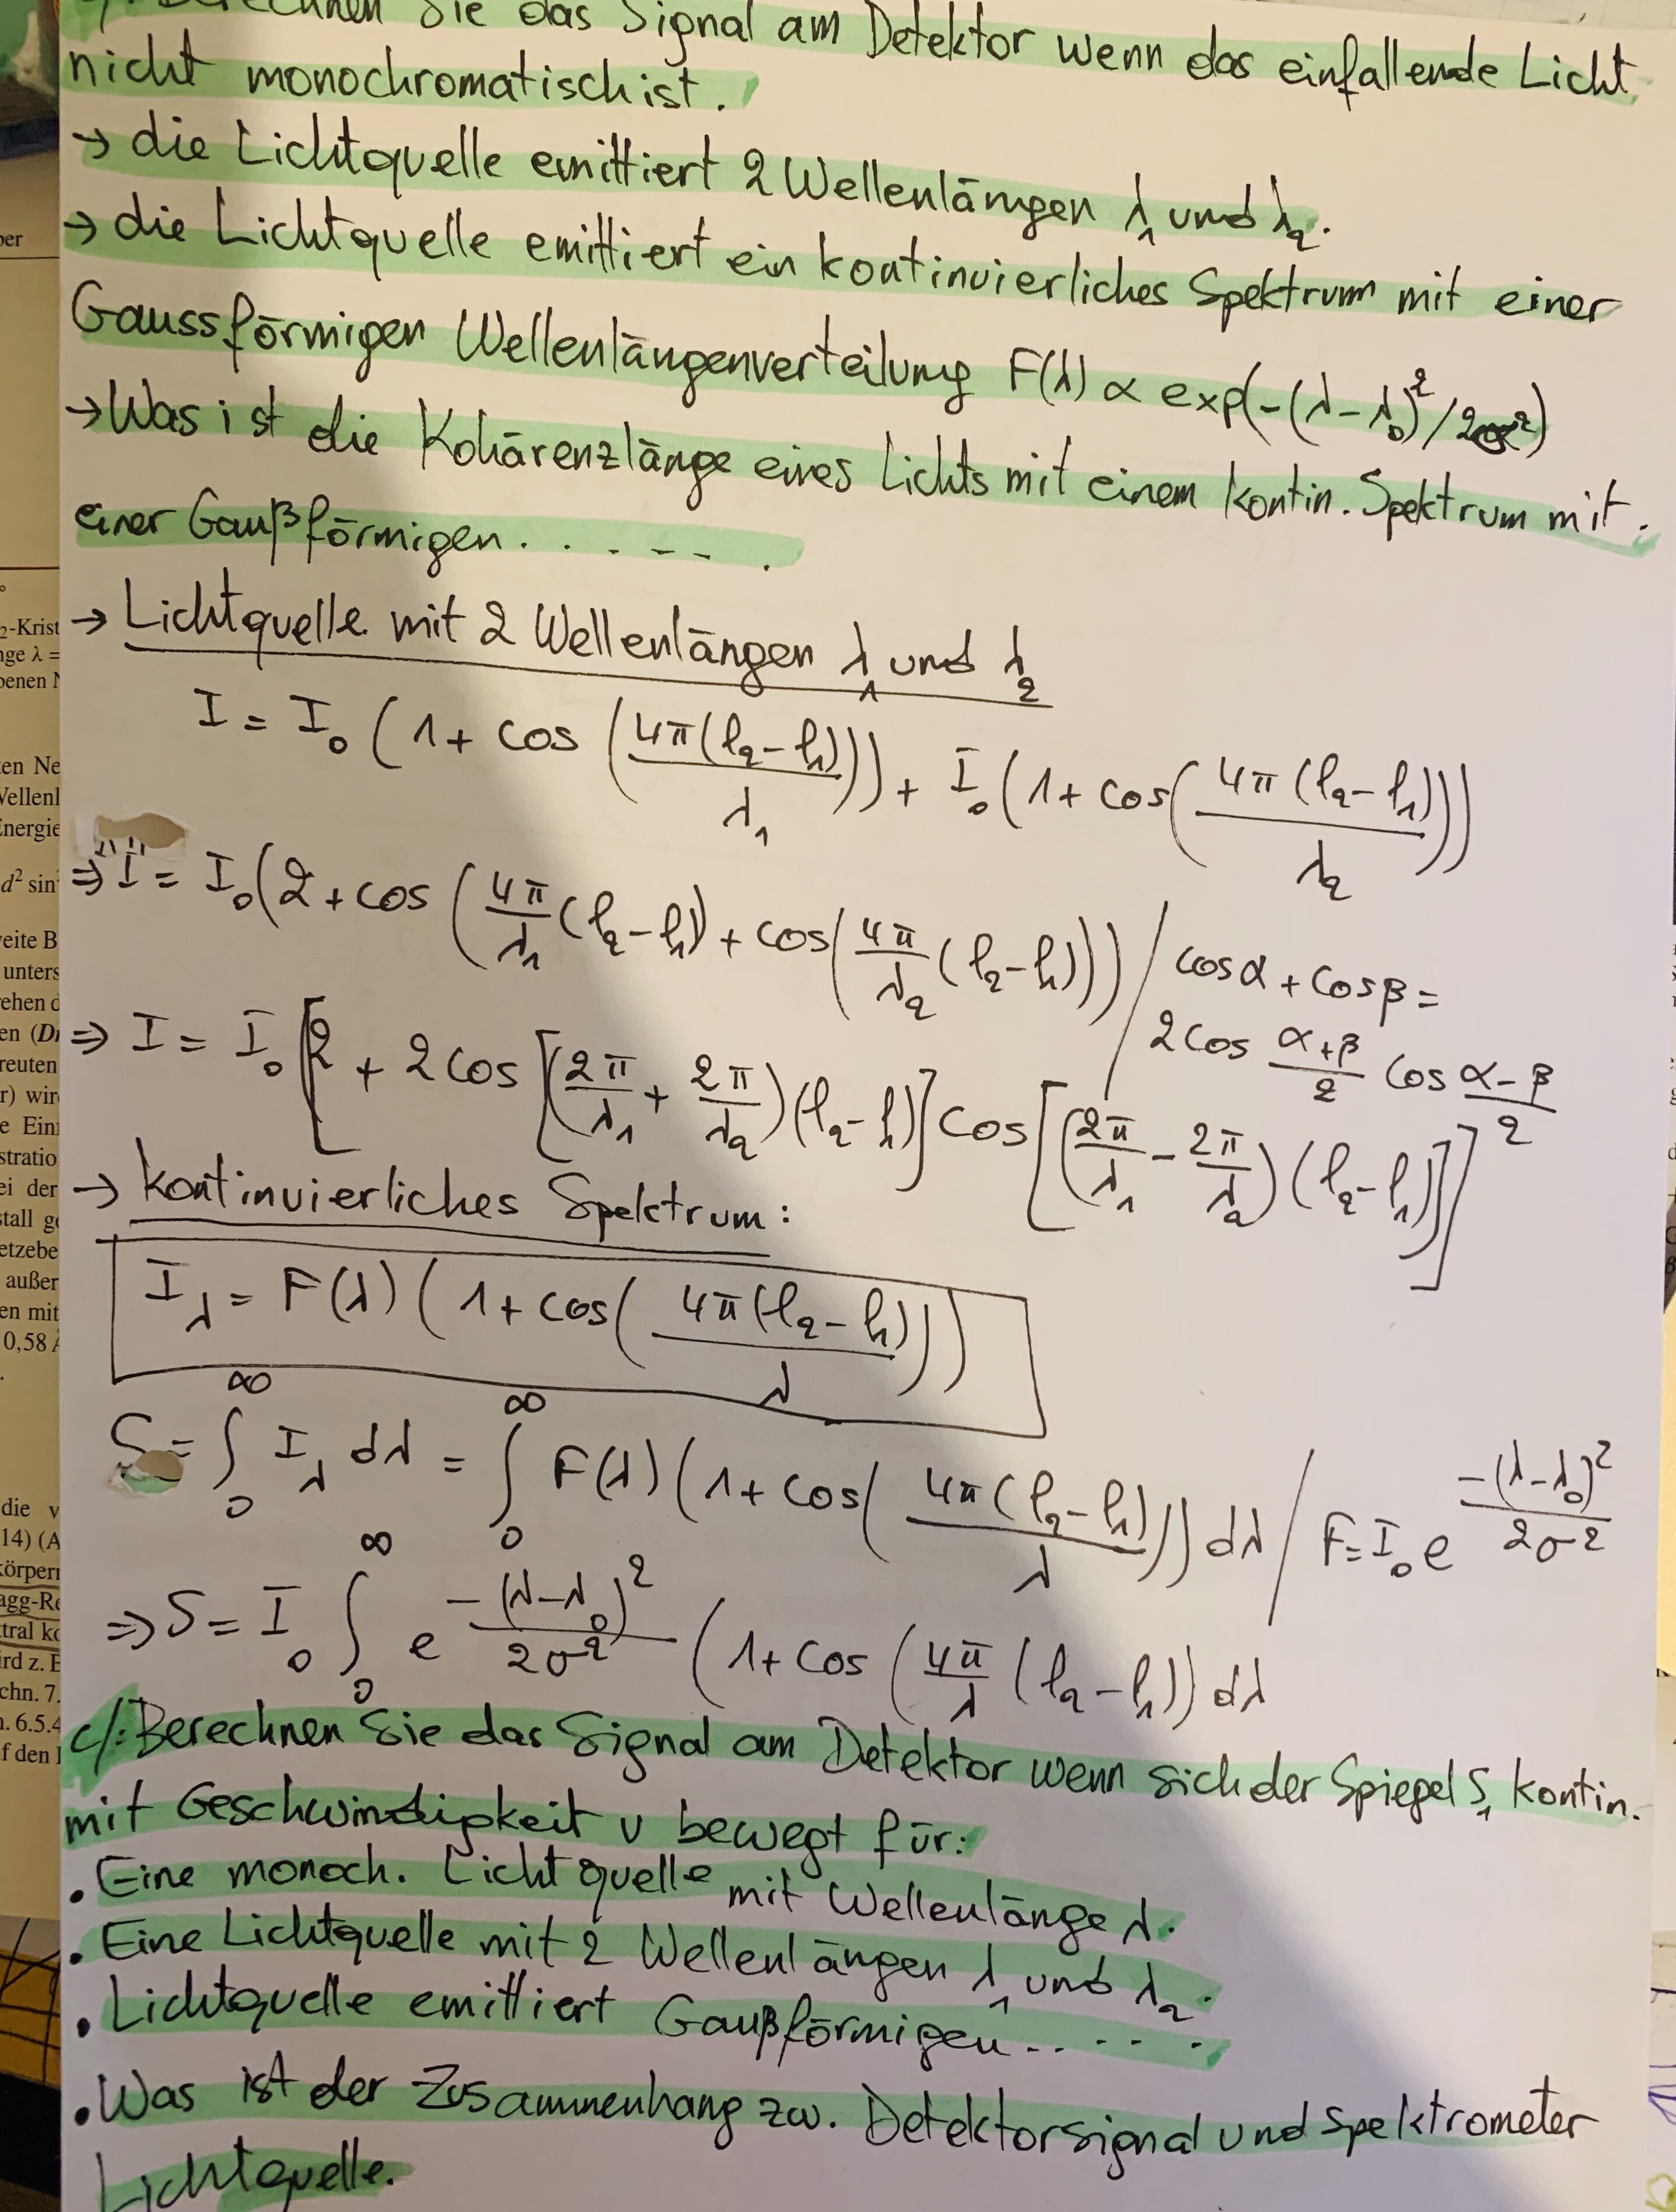 Berechnen Sie das Signal am Detektor wenn das einfallende Licht
nicht monochromatisch ist.
→ die Lichtquelle emittiert 2 Wellenlängen λ₁ und λ₂.
→ die Lichtquelle emittiert ein kontinuierliches Spektrum mit einer
Gaussförmigen Wellenlängenverteilung F(λ) ∝ exp(-(λ-λ₀)²/2σ²)
→ Was ist die Kohärenzlänge eines Lichts mit einem kontin. Spektrum mit.
einer Gaußförmigen. . . . - - .
→ Lichtquelle mit 2 Wellenlängen λ₁ und λ₂
I = I₀ (1 + cos (4π(l₂-l₁)/λ₁)) + I₀ (1 + cos(4π(l₂-l₁)/λ₂))
⇒ I = I₀(2 + cos (4π/λ₁ (l₂-l₁) + cos(4π/λ₂ (l₂-l₁))) / cosα + cosβ =
2 cos α+β/2 cos α-β/2
⇒ I = I₀ [2 + 2 cos [(2π/λ₁ + 2π/λ₂)(l₂-l₁)] cos [(2π/λ₁ - 2π/λ₂)(l₂-l₁)]]
→ kontinuierliches Spektrum:
I_λ = F(λ) (1 + cos( 4π(l₂-l₁)/λ ))
S = ∫₀^∞ I_λ dλ = ∫₀^∞ F(λ) (1 + cos( 4π(l₂-l₁)/λ )) dλ / F = I₀ e^(-(λ-λ₀)²/2σ²)
⇒ S = I₀ ∫₀^∞ e^(-(λ-λ₀)²/2σ²) (1 + cos (4π/λ (l₂-l₁)) dλ
c/: Berechnen Sie das Signal am Detektor wenn sich der Spiegel S₁ kontin.
mit Geschwindigkeit v bewegt für:
• Eine monoch. Lichtquelle mit Wellenlänge λ.
• Eine Lichtquelle mit 2 Wellenlängen λ₁ und λ₂.
• Lichtquelle emittiert Gaußförmigen.. - - .
• Was ist der Zusammenhang zw. Detektorsignal und Spektrometer
Lichtquelle.
per
2-Krist
nge λ =
benen N
ten Ne
Wellenl
Energie
d² sin
weite B
unters
ehen d
en (Dr
reuten
r) wir
e Ein
stratio
ei der
stall g
etzebe
außer
en mit
0,58
die v
14) (A
körper
agg-Re
tral ko
ird z. B
chn. 7.
n. 6.5.4
f den